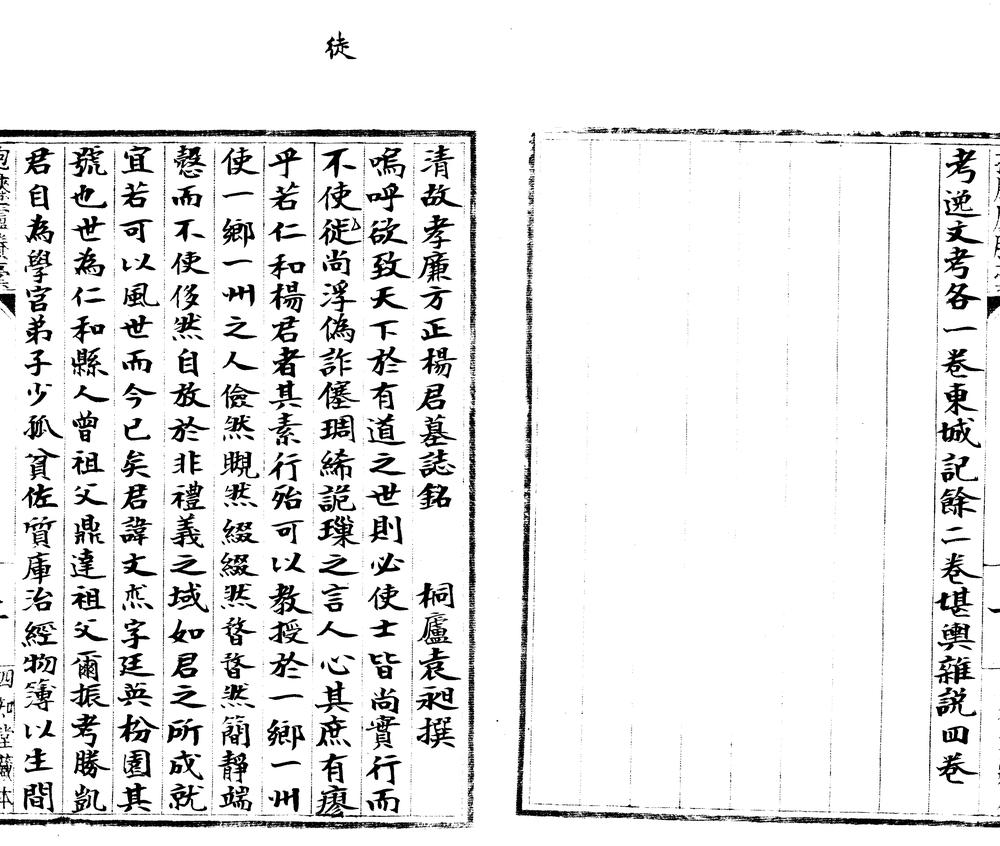 考逸文考各一卷東城記餘二卷堪輿雜説四卷
徒
清故孝廉方正楊君墓誌銘 桐廬袁昶撰
嗚呼欲致天下於有道之世則必使士皆尚實行而
不使徙尚浮偽詐僿琱絺詭璅之言人心其庶有瘳
乎若仁和楊君者其素行殆可以教授於一鄉一州
使一鄉一州之人儉然瞡然綴綴然瞀瞀然簡靜端
愨而不使侈然自放於非禮義之域如君之所成就
宜若可以風世而今已矣君諱文杰字廷英枌園其
號也世為仁和縣人曾祖父鼎達祖父爾振考勝凱
君自為學宮弟子少孤貧佐質庫治經物簿以生間
四知堂藏本